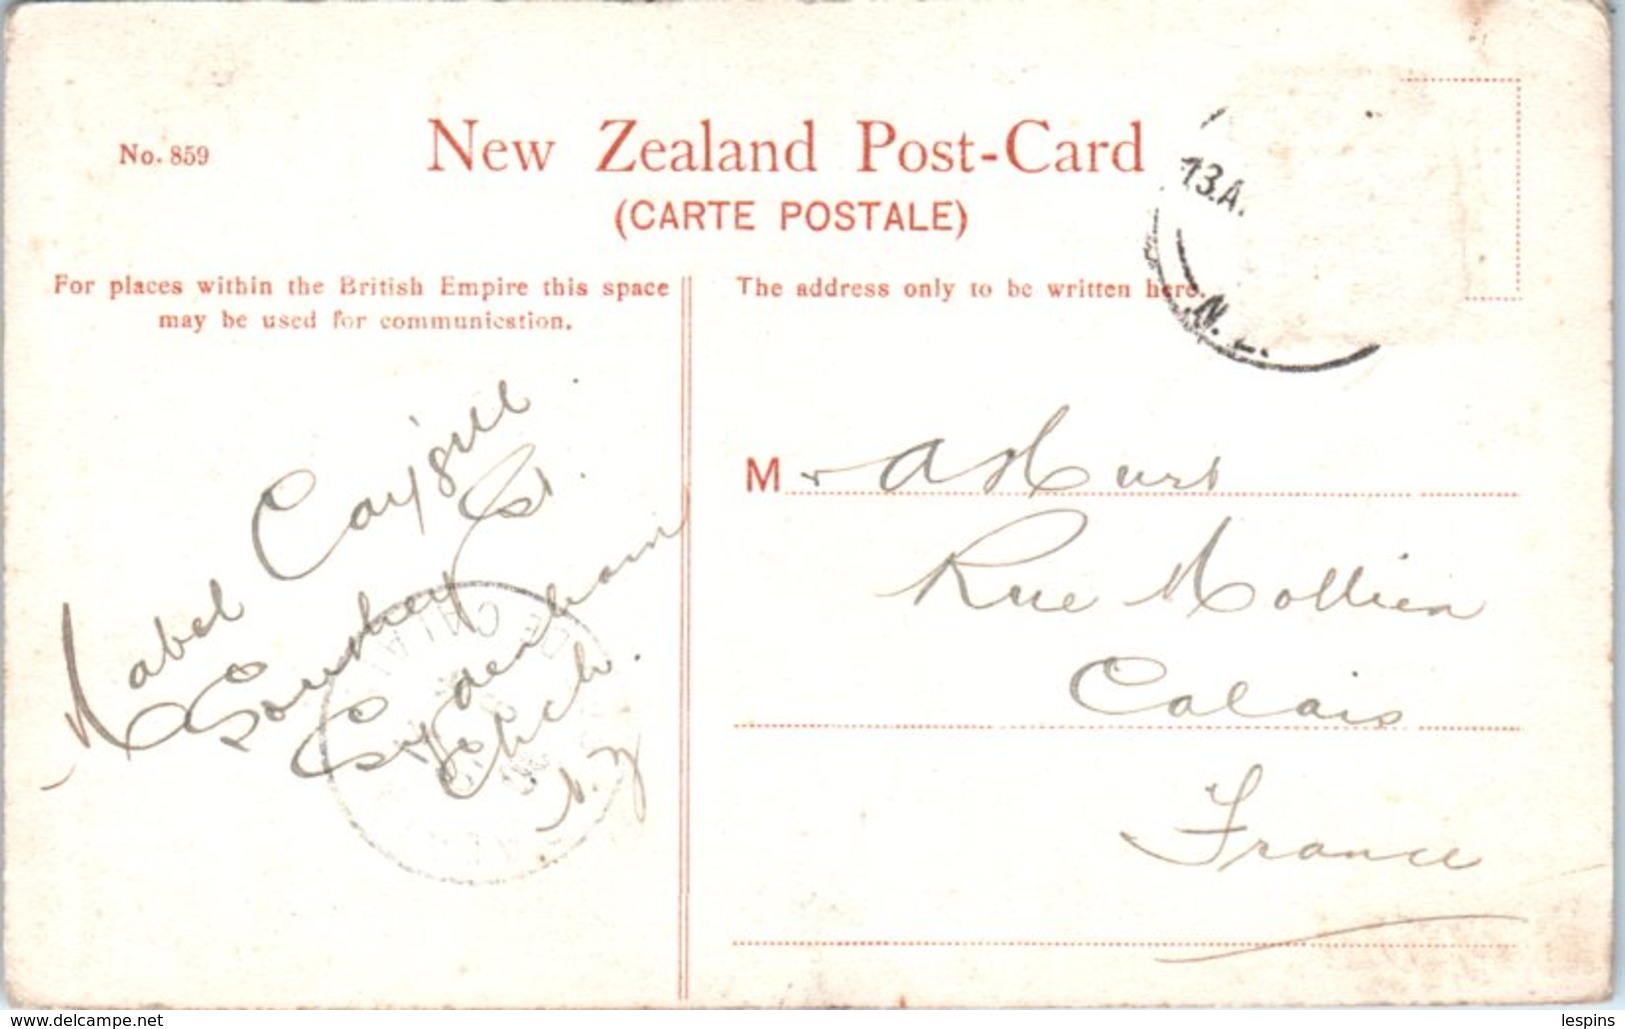 No. 859
New Zealand Post-Card
(CARTE POSTALE)
For places within the British Empire this space
may be used for communication.
The address only to be written here.
13.A.
N.Z.
Mabel Caygill
St.
Sydenham
Chch.
N.Z
Mr A Hurt
Rue Mollien
Calais
France
www.delcampe.net
lespins